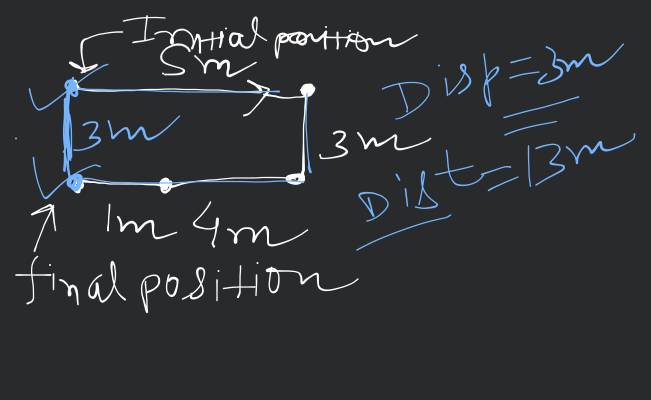 Initial position
5m
Disp = 3m
3m
3m
Dist = 13m
1m 4m
final position